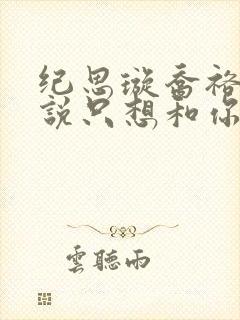 纪思璇乔裕
說只想和你
雲聽雨